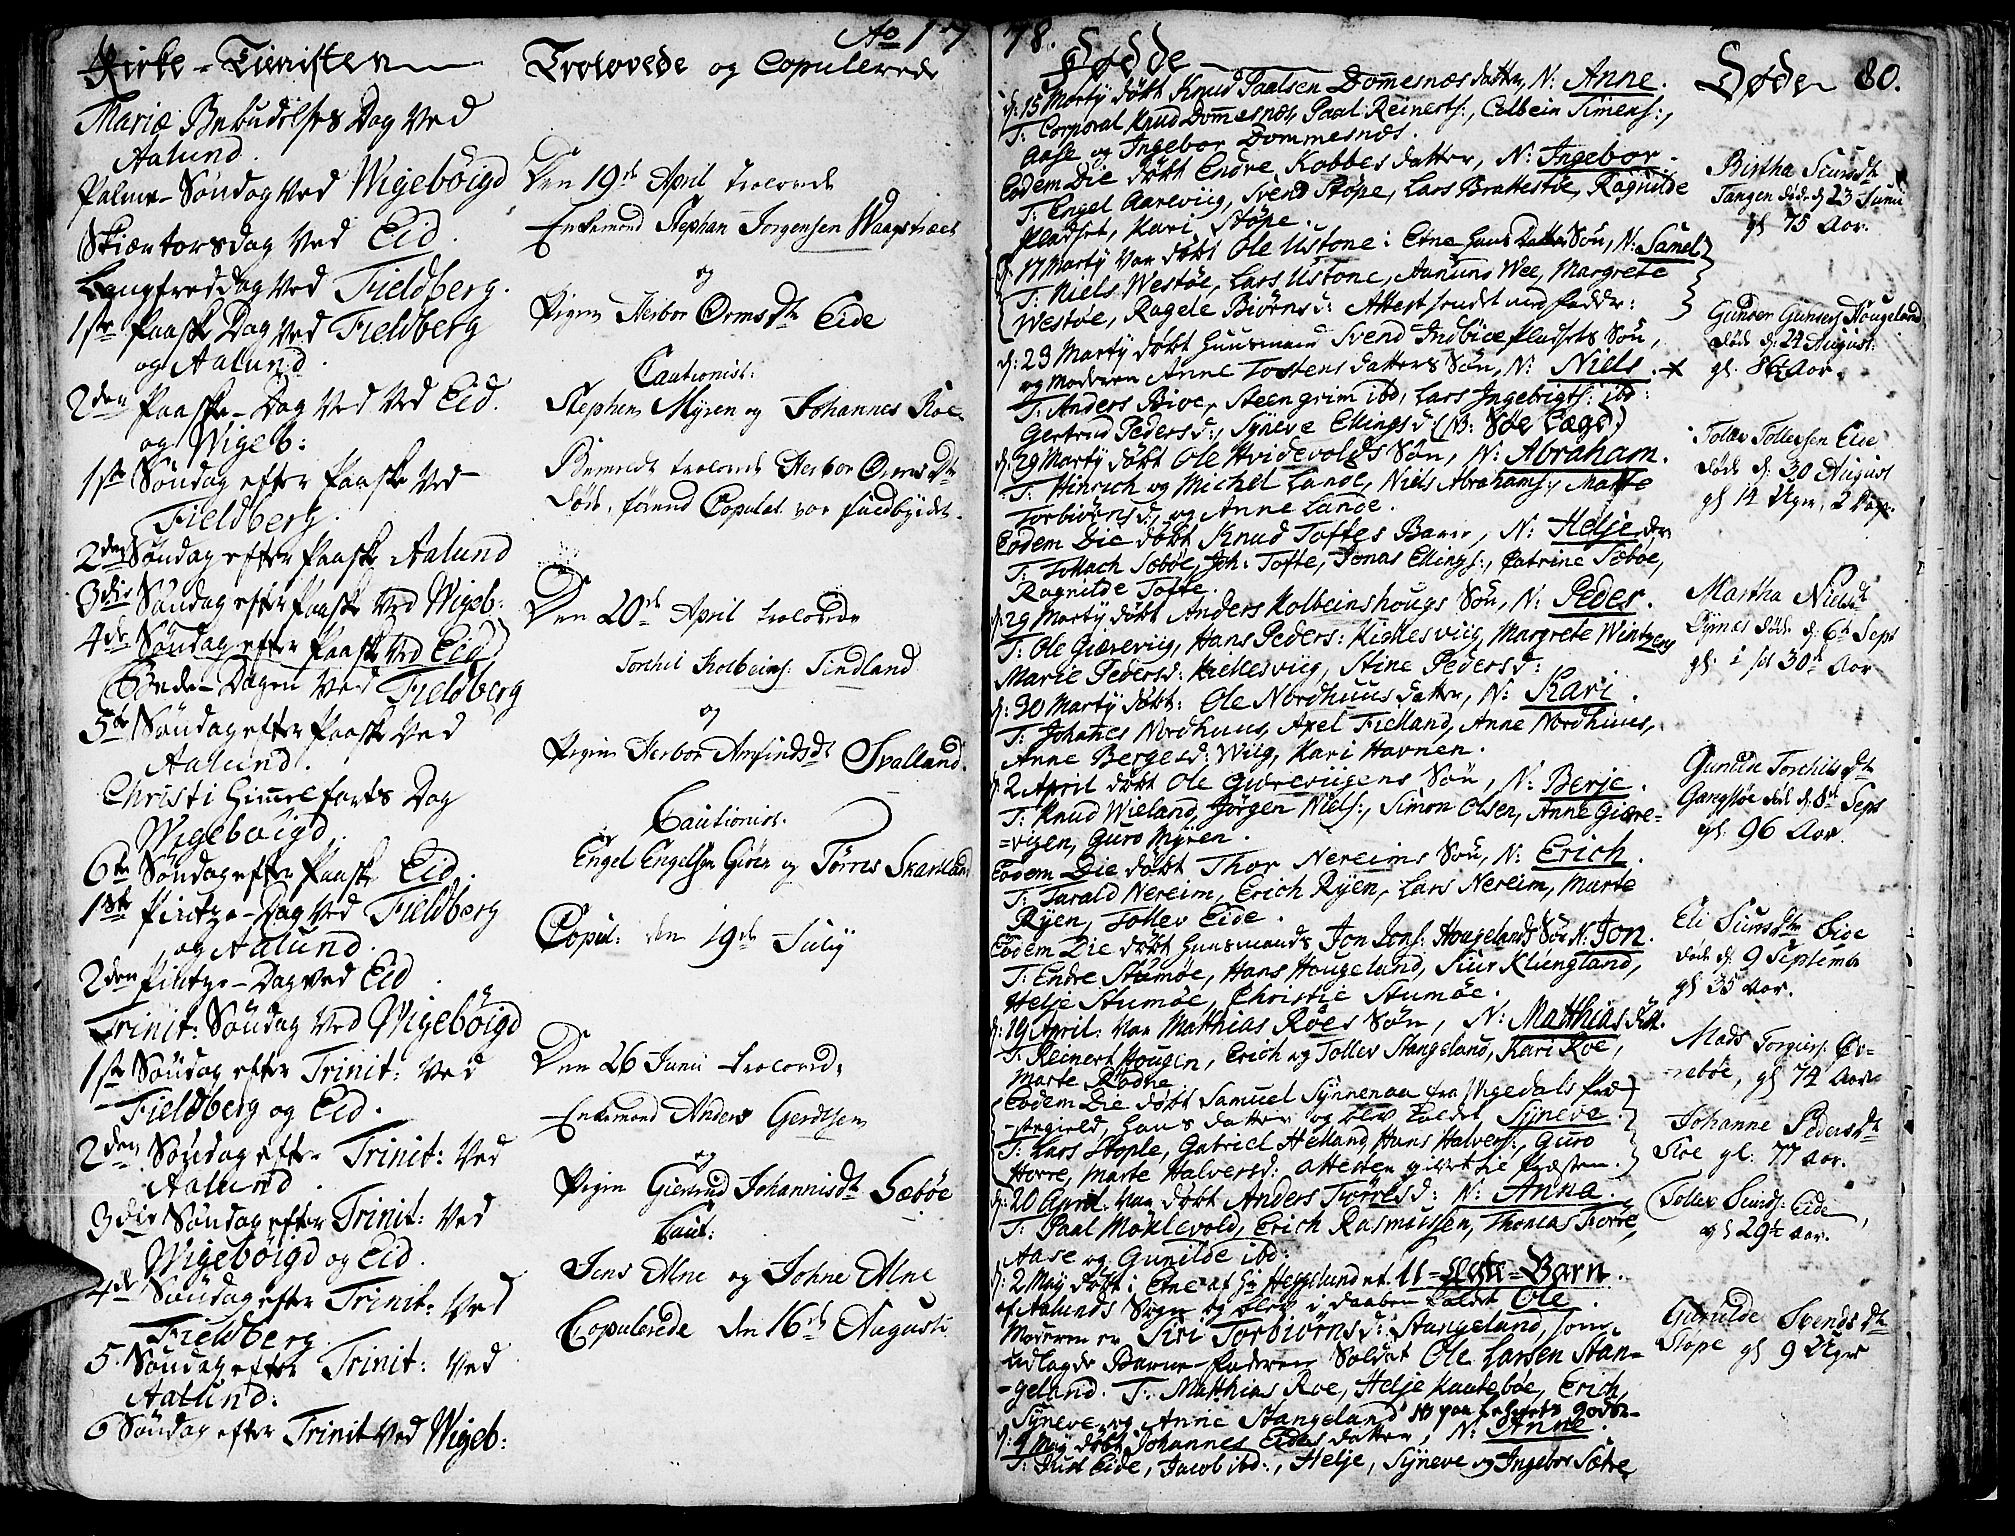 Ao 1778.
Kirke-Tienisten
Mariæ Bebudelses Dag Ved
Aalund.
Palme-Søndag Ved Wigebøigd
Skiærtorsdag Ved Eid.
Langfreddag Ved Fieldberg.
1ste Paaske Dag Ved Fieldberg
og Aalund.
2den Paaske-Dag Ved Ved Eid.
og Wigeb:
1ste Søndag efter Paaske Ved
Fieldberg.
2den Søndag efter Paaske Aalund
3die Søndag efter Paaske Ved Wigeb:
4de Søndag efter Paaske Ved Eid
Bønde-Dagen Ved Fieldberg
5te Søndag efter Paaske Ved
Aalund.
Christi Himmelfarts Dag
Wigebøigd.
6te Søndag efter Paaske Eid.
1ste Pintze-Dag Ved Fieldberg
og Aalund.
2den Pintze-Dag Ved Eid
Trinit: Søndag Ved Wigebøigd
1ste Søndag efter Trinit: Ved
Fieldberg og Eid.
2den Søndag efter Trinit: Ved
Aalund.
3die Søndag efter Trinit: Ved
Wigebøigd og Eid.
4de Søndag efter Trinit: Ved
Fieldberg.
5. Søndag efter Trinit: Ved
Aalund:
6 Søndag efter Trinit Ved Wigeb:
Trolovede og Copulerede
Den 19de April trolovede
Enkemand Stephan Jorgensen Waagstræt
og
Pigen Herbor Ormsdtr Eide
Cautionist:
Stephen Myren og Johannes Roe
Bemeldte trolovede Herbor Ormsdtr
døde, førend Copulat. var fuldbyrdet.
Den 20de April trolovede
Torchel Kolbeins: Tindland
og
Pigen Herbor Amfindsdt Svalland.
Cautionist.
Engel Engelsen Giøen og Tørres Skartland
Copul: den 19de July
Den 26 Junii trolovede
Enkemand Anders Gerdtsen
og
Pigen Giertrud Johannisdtr Sæbøe
Caut:
Jens Alne og Johne Alne
Copulerede den 16de Augusti
Fødde
d: 15 Marty døbt Knud Paalsen Dommesnæs datter, N: Anne.
T: Corporal Knud Dommesnæs, Paal Reinerts:, Colbein Simens:,
Aase og Ingebor Dommesnæs.
Eodem Die døbt Endre Kobbes datter, N: Ingebor.
T: Engel Aareviig, Svend Støpe, Lars Brattestøe, Ragnilde
Pladset, Kari Støpe.
d: 17 Marty Var døbt Ole Ustone i Etne hans Datter Søn, N: Samel
T: Niels Westøe, Lars Ustone, Aanuns Wee, Margrete
Westøe, Ragele Biørnsd: Attest sendet med fadder:
d: 23 Marty døbt Huusmand Svend Indbioe Pladsets Søn,
og Moderen Anne Tostens datters Søn, N: Niels.
T: Anders Bioe, Steengrim ibd, Lars Ingebrigts: ibd:
Gertrud Pedersd:, Syneve Ellingsd: (NB: Søe Lægd)
d: 29 Marty døbt Ole Hvidevolds Søn, N: Abraham.
T: Hinrich og Michel Lande, Niels Abrahams:, Matte
Torbiørnsd:, og Anne Lande.
Eodem Die døbt Knud Toftes Barn, N: Helje
T: Tollach Sæbøe, Joh: Tofte, Jonas Ellings:, Catrine Sæbøe,
Ragnilde Tofte.
d: 29 Marty døbt Anders Kolbeinshougs Søn, N: Peder.
T: Ole Giæreviig, Hans Peders: Kiellesviig, Margrete Wintzen
Marie Pedersd: Kiellesviig, Stine Pedersd:
d: 30 Marty døbt: Ole Nordhuus datter, N: Kari.
T: Johanes Nordhuus, Axel Fielland, Anne Nordhuus,
Anne Bergesd: Wiig, Kari Havnen.
d: 2 April døbt Ole Giæreviigens Søn, N: Berje.
T: Knud Wieland, Jørgen Niels:, Simon Olsen, Anne Giære-
=vigen, Guro Myren.
Eodem Die døbt Thor Nereims Søn, N: Erich.
T: Tarald Nereim, Erich Ryen, Lars Nereim, Marte
Ryen, Tollev Eide.
Eodem Die døbt Huusmands Jon Jons: Hougelands Søn N: Jon.
T: Endre Stumøe, Hans Hougeland, Siur Klungland,
Helje Stumøe, Christie Stumøe.
d: 19 April: Var Matthias Røes Søn, N: Matthias døbt.
T: Reenert Hougen, Erich og Tollev Stangeland, Kari Roe,
Marte Rødne
Eodem Die døbt Samuel Synnenaa fra Wigedals Præ-
-stegield, hans datter og blev kaldet Syneve.
T: Lars Stople, Gabriel Helland, Hans Halvers:, Guro
Horre, Marte Halversd: Attesten givet til Præsten.
d: 20 April Var døbt Anders Tørresd: N: Anna.
T: Paal Møklevold, Erich Rasmussen, Thomas Torre,
Aase og Gunilde ibd:
d: 2 May døbt i Etne af Hr Heggelund et U-Ægte-Barn.
af Aalunds Sogn og blev i daaben kaldet Ole.
Moderen er Siri Torbiørnsd: Stangeland, som
udlagde Barne-faderen Soldat Ole Larsen Stan=
-geland. T: Matthias Roe, Helje Kaatebøe, Erich,
Syneve og Anne Stangeland
d: 4 May døbt Johannes Eides datter, N: Anne.
T: Just Eide, Jacob ibd:, Helje, Syneve og Ingebor Sætre
Døde 80.
Birtha Siursdt
Tangen døde d. 23 Junii
gl 75 Aar.
Gunder Gunders: Hougeland
døde d: 24 August:
gl. 86 Aar.
Tollev Tollevsen Eide
døde d. 30 August
gl 14 Uger, 2 Dage.
Martha Nielsdt
Dymes døde d: 6t Sept
gl: i sit 30de Aar
Gunilde Torchilsdtr
Gangstøe døde d: 8de Sept
gl. 96 Aar.
Eli Siursdtr Eide
døde d: 9 Septemb
gl 35 Aar.
Mads Torgiers: Ør-
-rebøe, gl 74 Aar
Johanne Pedersdtr
Floe gl: 77 Aar.
Tollev Siurds: Eide
gl 29½ Aar.
Gunilde Svendsdtr
Støpe gl 9 Uger